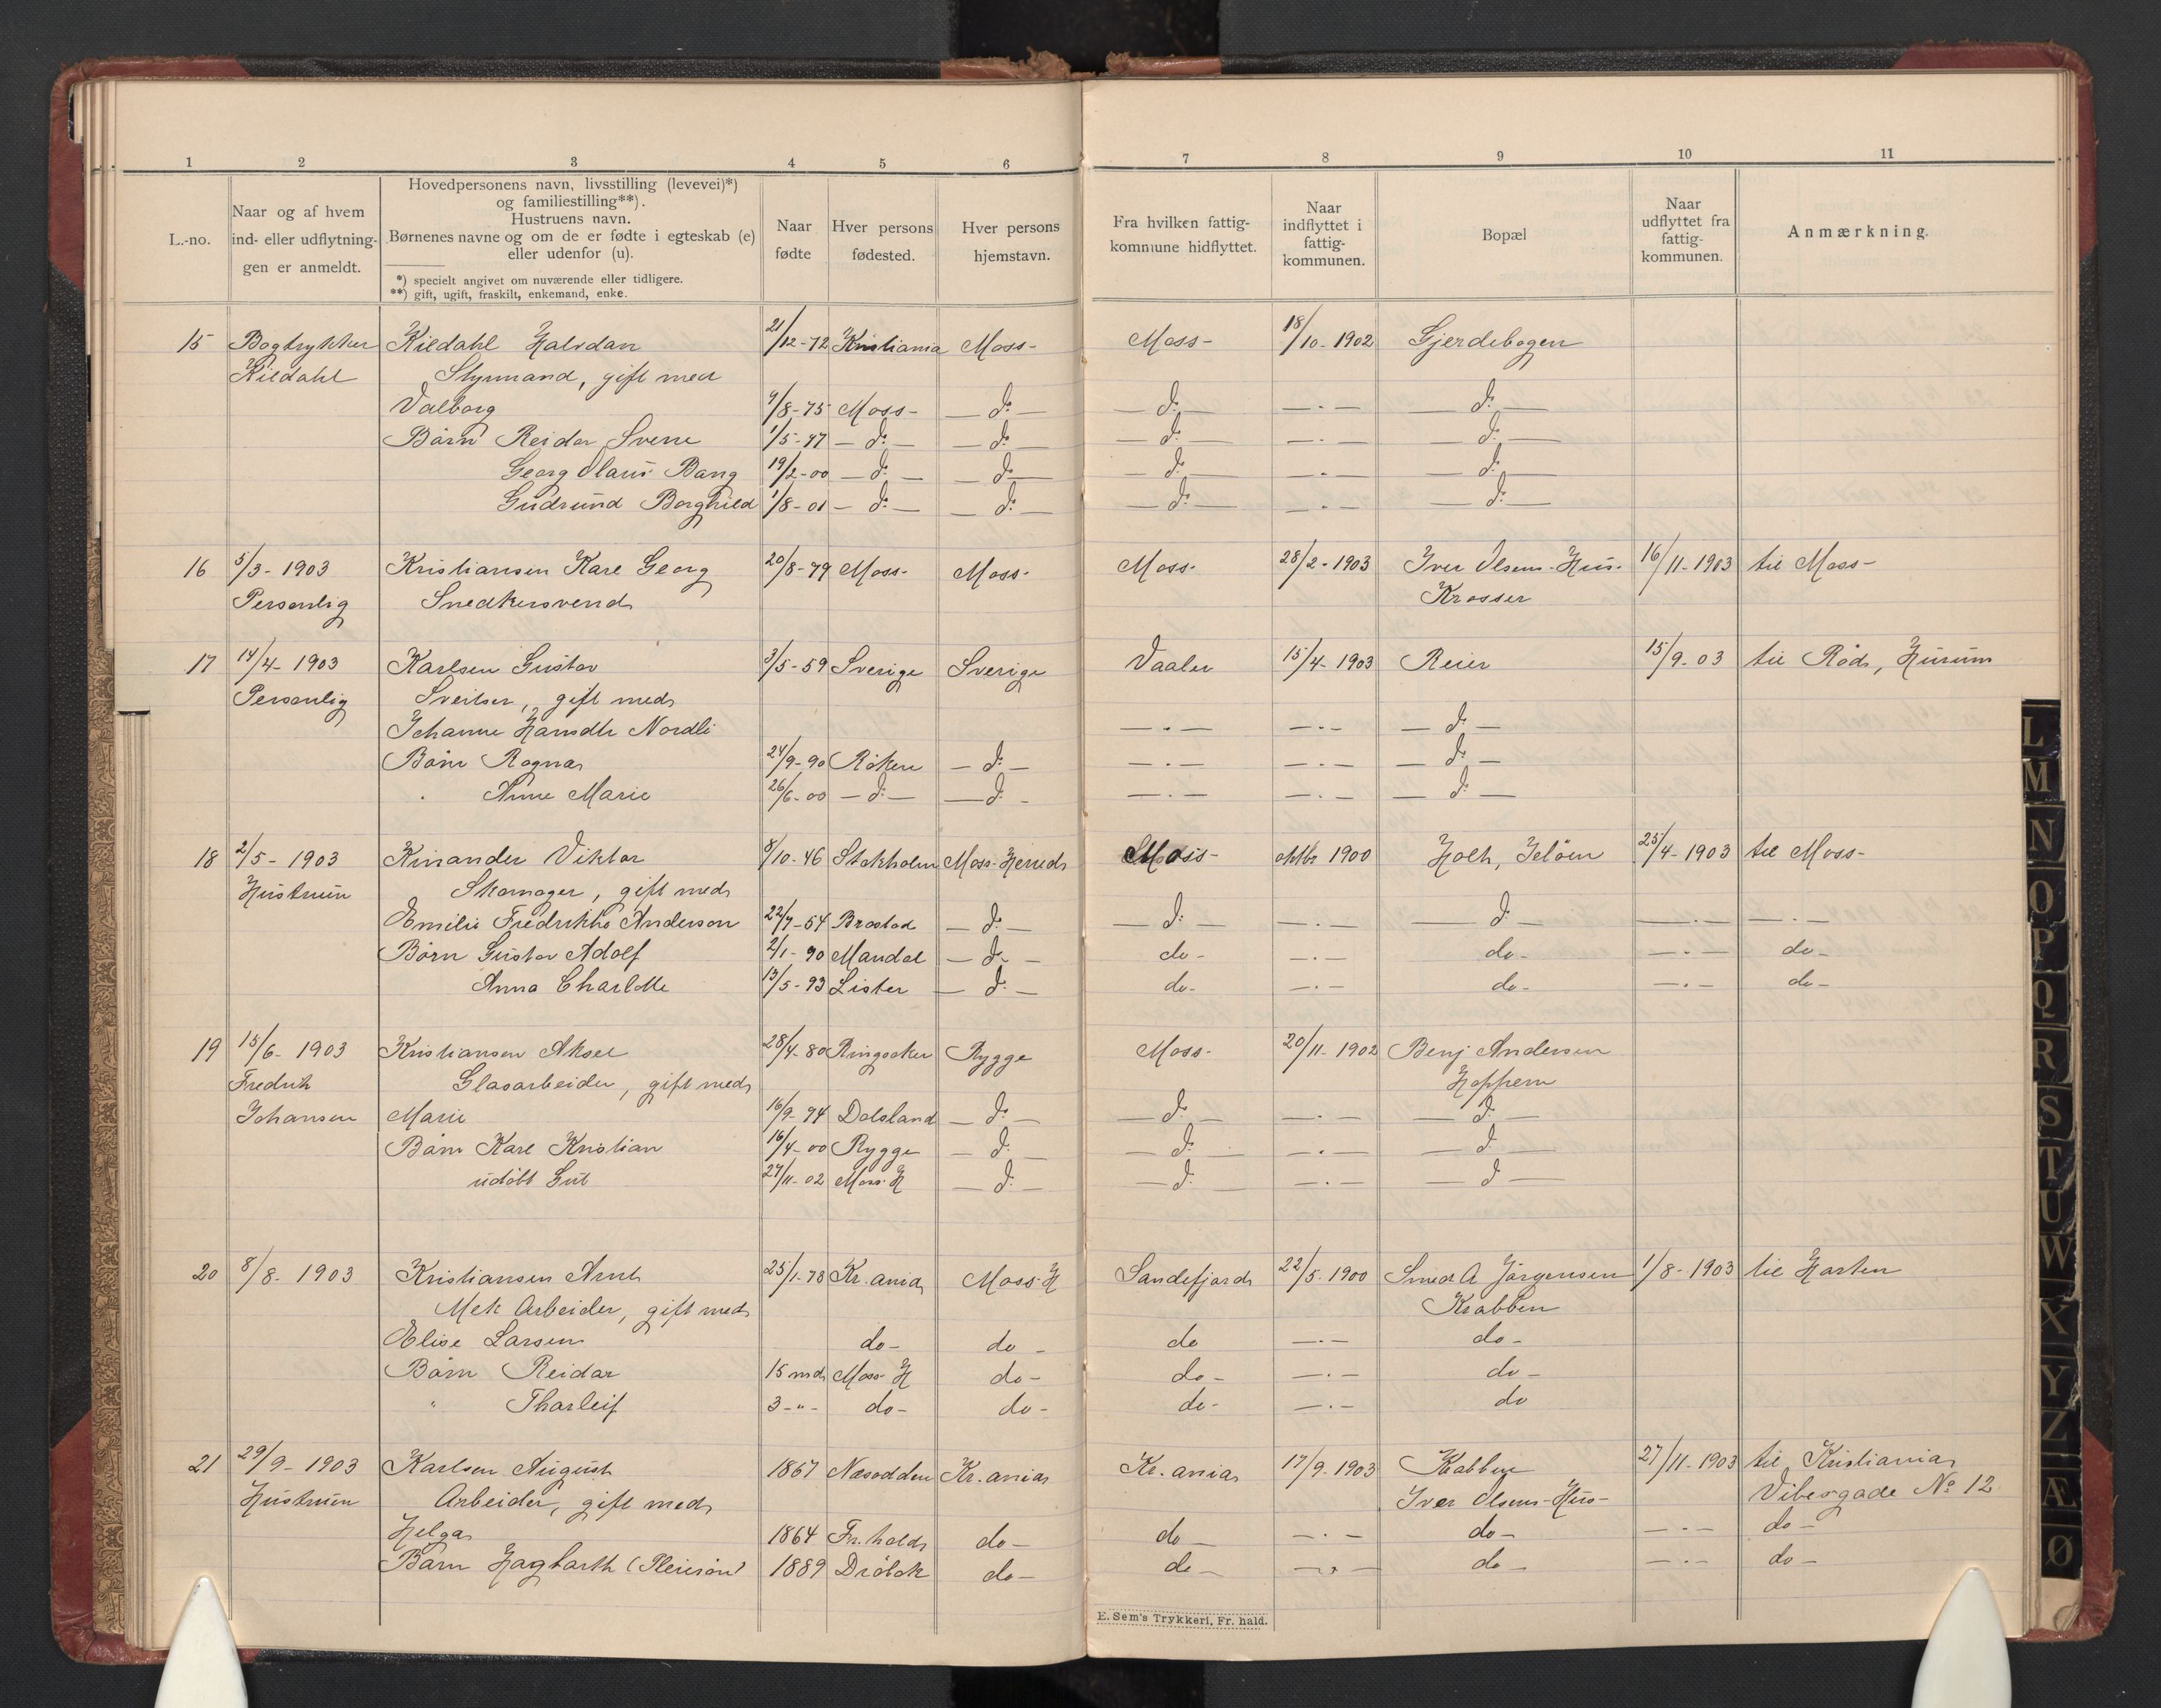 1 2 3 4 5 6 7 8 9 10 11
L.-no.
Naar og af hvem
ind- eller udflytnin-
gen er anmeldt.
Hovedpersonens navn, livsstilling (levevei)*)
og familiestilling**).
Hustruens navn.
Børnenes navne og om de er fødte i egteskab (e)
eller udenfor (u).
*) specielt angivet om nuværende eller tidligere.
**) gift, ugift, fraskilt, enkemand, enke.
Naar
fødte
Hver persons
fødested.
Hver persons
hjemstavn.
Fra hvilken fattig-
kommune hidflyttet.
Naar
indflyttet i
fattig-
kommunen.
Bopæl
Naar
udflyttet fra
fattig-
kommunen.
Anmærkning.
15 Bogtrykker Kildahl Halvdan 21/12-72 Kristiania Moss- Moss- 18/10-1902 Gjerdebogen
Kildahl Styrmand, gift med
Valborg 9/8-75 Moss- — d: — — d: — — . — — d: —
Børn Reidar Sverre 1/5-97 — d: — — d: — — d: — — . — — d: —
Georg Olaus Bang 19/2-00 — d: — — d: — — d: — — . — — d: —
Gudrund Borghild 1/8-01 — d: — — d: — — d: — — . — — d: —
16 5/3-1903 Kristiansen Karl Georg 20/8-79 Moss- Moss- Moss- 28/2-1903 Iver Olsens-Hus- 16/11-1903 til Moss-
Personlig Snedkersvend Krosser
17 14/4-1903 Karlsen Gustav 3/5-59 Sverige Sverige Vaaler 15/4-1903 Reier 15/9-03 til Rød, Hurum
Personlig Sveitser, gift med
Johanne Hansdtr Nordli — . — — . — — d: —
Børn Ragnar 24/9-90 Røken — d: — — . — — . — — d: —
Anne Marie 26/6-00 — d: — — d: — — . — — . — — d: —
18 2/5-1903 Kinander Viktor 8/10-46 Stokholm Moss-Herred Moss- oktbr 1900 Holt, Jeløen 25/4-1903 til Moss-
Hustruen Skomager, gift med
Emilie Fredrikke Anderson 22/7-54 Brastad — d: — — d: — — . — — d — — . — — . —
Børn Gustav Adolf 2/1-90 Mandal — d: — do- — . — do- — . — do-
Anna Charlotte 13/5-93 Lister — d: — do- — . — do- — . — do-
19 15/6-1903 Kristiansen Aksel 28/4-80 Ringsaker Rygge Moss- 20/11-1902 Benj Andersen
Fredrik Glasarbeider, gift med Hoppern
Johansen Marie 16/9-74 Dalsland — d: — — d: — — . — — d: —
Børn Karl Kristian 16/4-00 Rygge — d: — — d: — — . — — d —
udøbt Gut 27/11-02 Moss H — d: — — d: — — . — — d —
20 8/8-1903 Kristiansen Arnt 25/1-78 Kr.ania Moss-H Sandefjord 22/5-1900 Smed A Jørgensen 1/8-1903 til Horten
Mek Arbeider, gift med Krabben
Elise Larsen do- do- do — . — do-
Børn Reidar 15 md Moss H do- do- — . — do-
" Thorleif 3-"- do- do- do- — . — do
21 29/9-1903 Karlsen August 1867 Næsodden Kr.ania Kr.ania 17/9-1903 Krabben 27/11-1903 til Kristiania
Hustruen Arbeider, gift med Iver Olsens-Hus- Vibesgade No 12
Helga 1864 Fr.hald do- do- — . — do- — . — do-
Børn Hagbarth (Pleiesøn) 1889 Drøbak do- do- — . — do- — . — do-
E. Sem's Trykkeri, Fr. hald.
L
M
N
O
P
Q
R
S
T
U
W
X
Y
Z
Æ
Ø